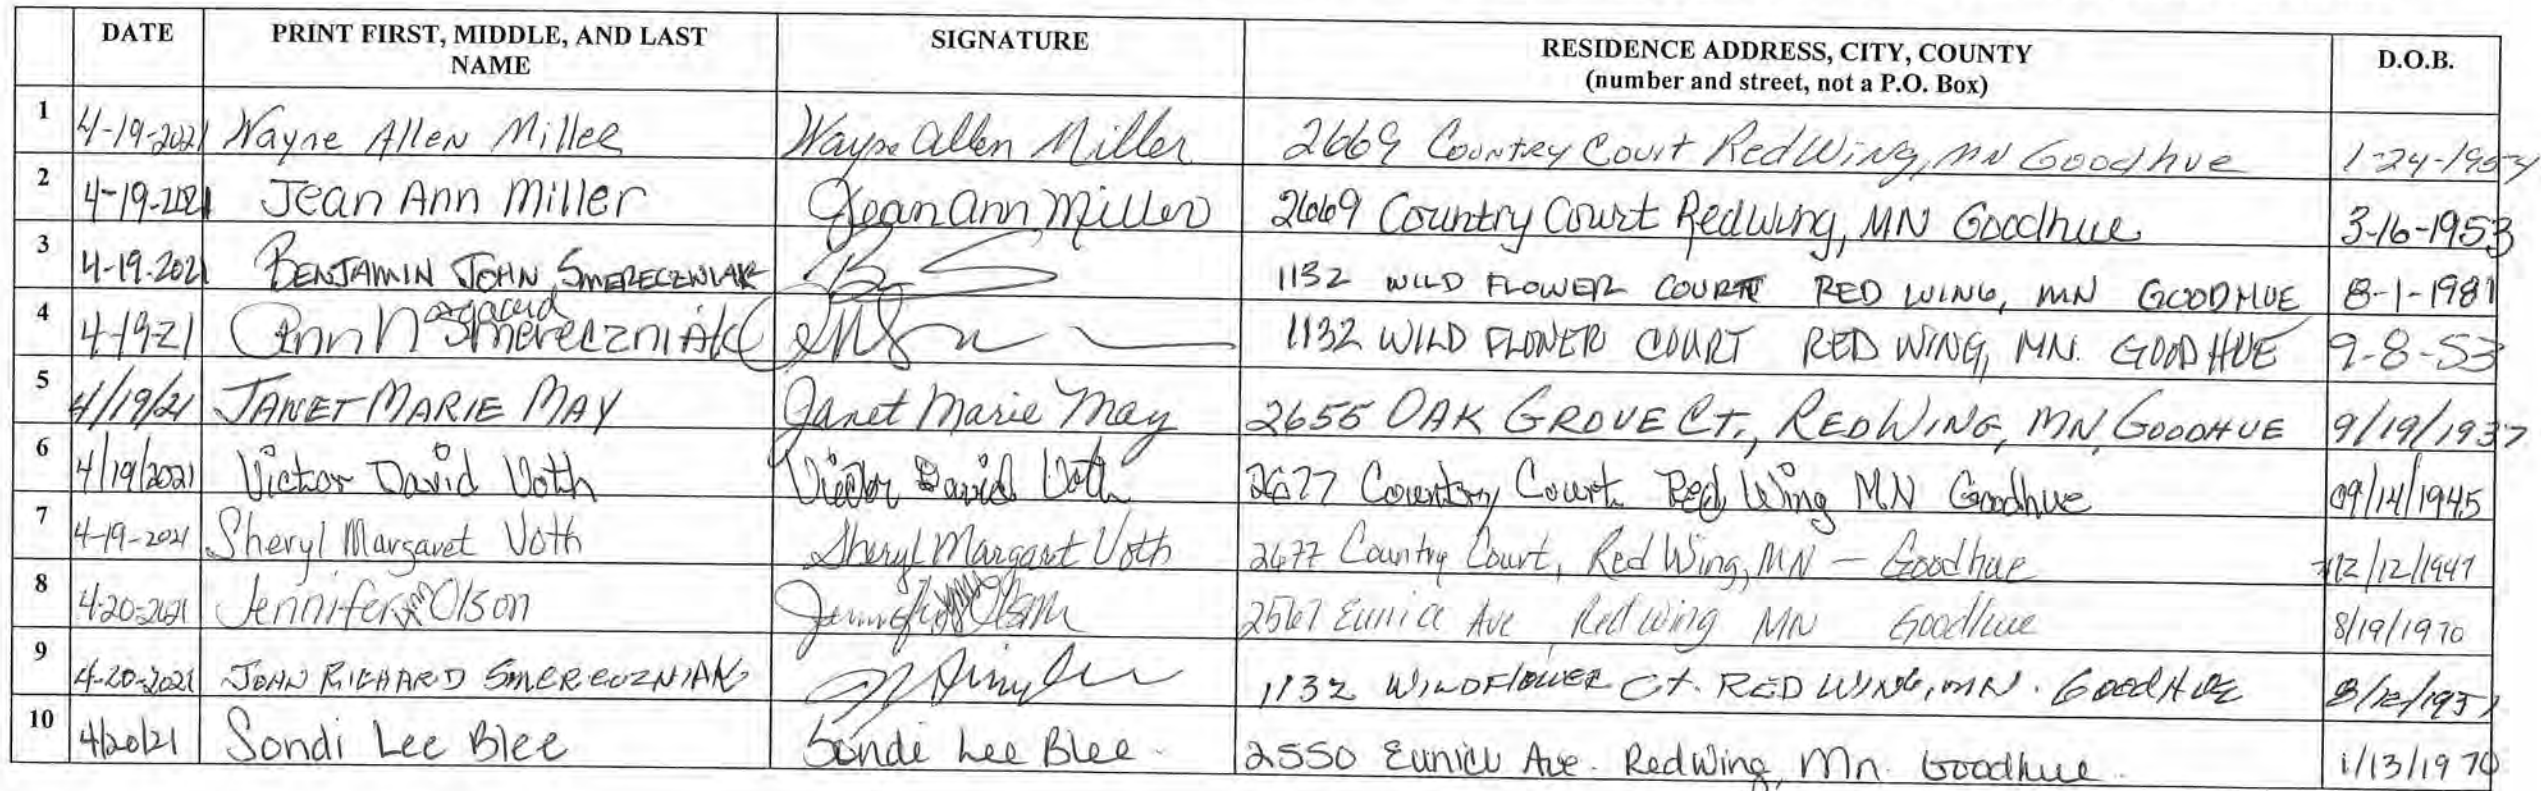 DATE PRINT FIRST, MIDDLE, AND LAST NAME SIGNATURE RESIDENCE ADDRESS, CITY, COUNTY (number and street, not a P.O. Box) D.O.B.
1 4-19-2021 Wayne Allen Miller Wayne Allen Miller 2669 Country Court Red Wing, MN Goodhue 1-24-1954
2 4-19-2021 Jean Ann Miller Jean Ann Miller 2669 Country Court Red Wing, MN Goodhue 3-16-1953
3 4-19-2021 BENJAMIN JOHN SMERECZNIAK 1132 WILD FLOWER COURT RED WING, MN GOODHUE 8-1-1981
4 4-19-21 Ann Margaret Smereczniak 1132 WILD FLOWER COURT RED WING, MN. GOODHUE 9-8-53
5 4/19/21 JANET MARIE MAY Janet Marie May 2655 OAK GROVE CT., RED WING, MN, GOODHUE 9/19/1937
6 4/19/2021 Victor David Voth Victor David Voth 2677 Country Court Red Wing MN Goodhue 09/14/1945
7 4-19-2021 Sheryl Margaret Voth Sheryl Margaret Voth 2677 Country Court, Red Wing, MN - Goodhue 12/12/1947
8 4-20-2021 Jennifer Lynn Olson Jennifer Lynn Olson 2567 Eunice Ave Red Wing MN Goodhue 8/19/1970
9 4-20-2021 JOHN RICHARD SMERECZNIAK 1132 WILDFLOWER Ct. RED WING, MN. GOODHUE 8/12/1951
10 4/20/21 Sondi Lee Blee Sondi Lee Blee 2550 Eunice Ave. Red Wing, Mn. Goodhue 1/13/1970